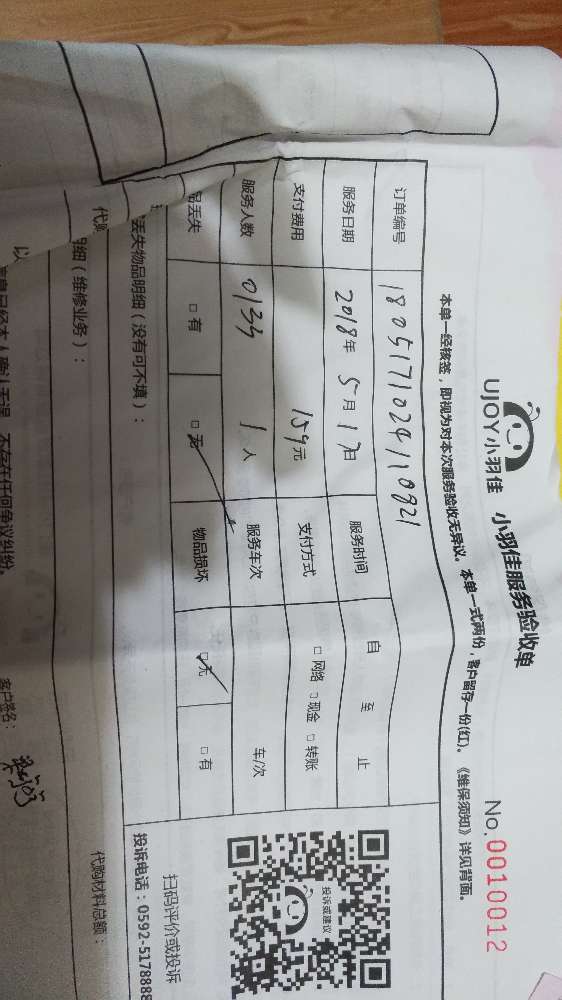 UJOY小羽佳 小羽佳服务验收单
No.0010012
本单一经核签，即视为对本次服务验收无异议。本单一式两份，客户留存一份(红)。《维保须知》详见背面。
订单编号 1805171024110821
服务日期 2018年 5月 17日 服务时间 自 至 止
支付费用 159元 支付方式 □ 网络 □ 现金 □ 转账
服务人数 0133 1人 服务车次 车/次
丢失 □ 有 □ 无 物品损坏 □ 无 □ 有
丢失物品明细（没有可不填）：
明细（维修业务）：
代购材料总额：
投诉或建议
扫码评价或投诉
投诉电话：0592-5178888
客户签名：